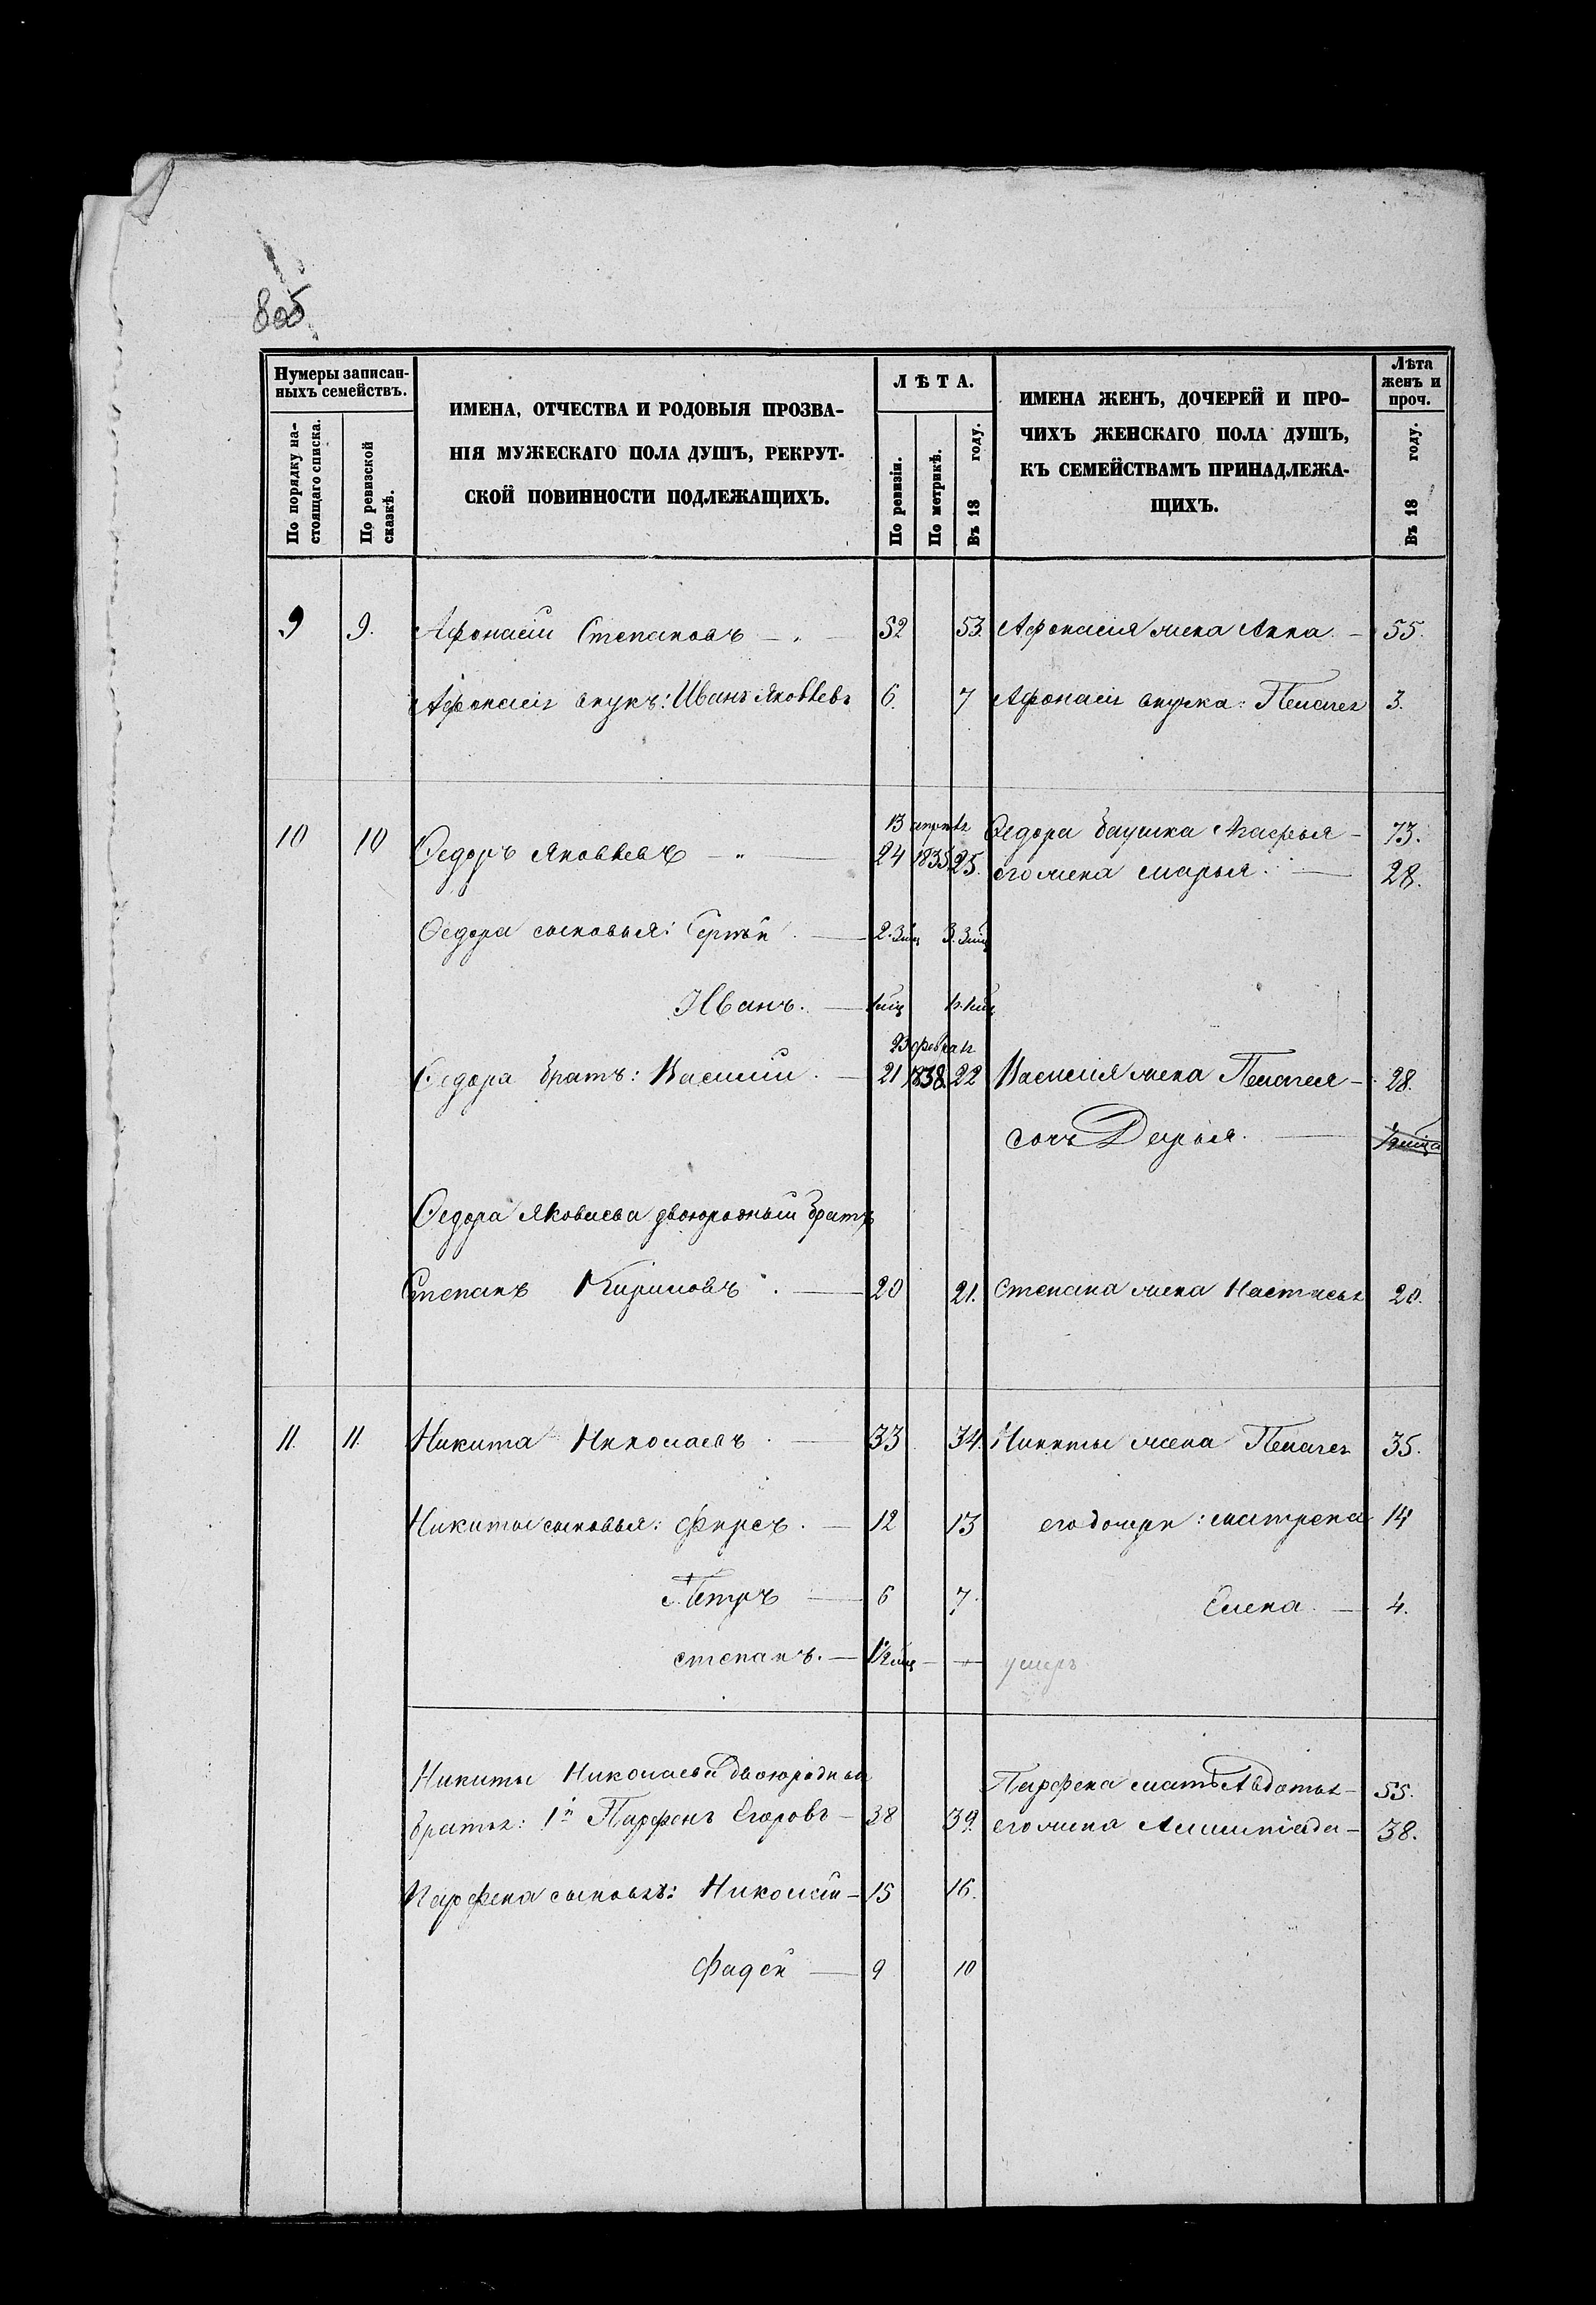 805
Нумеры записан-
ныхъ семействъ.
По порядку на-
стоящаго списка.
По ревизской
сказкѣ.
ИМЕНА, ОТЧЕСТВА И РОДОВЫЯ ПРОЗВА-
НІЯ МУЖЕСКАГО ПОЛА ДУШЪ, РЕКРУТ-
СКОЙ ПОВИННОСТИ ПОДЛЕЖАЩИХЪ.
ЛѢТА.
По ревизіи.
По метрикѣ.
Въ 18 году.
ИМЕНА ЖЕНЪ, ДОЧЕРЕЙ И ПРО-
ЧИХЪ ЖЕНСКАГО ПОЛА ДУШЪ,
КЪ СЕМЕЙСТВАМЪ ПРИНАДЛЕЖА-
ЩИХЪ.
Лѣта
женъ и
проч.
Въ 18 году.
9 9. Афонасій Степановъ 52 53. Афонасія жена Анна 55.
Афонасія внукъ: Иванъ Яковлевъ 6. 7 Афонасія внучка: Пелагея 3.
13 апрѣля Ѳедора баушка Агафья 73.
10 10 Ѳедоръ Яковлевъ 24 1835 25. его жена Марья 28.
Ѳедора сыновья: Сергѣй 2. 3 мѣц 3. 3 мѣц
Иванъ.
23 февраля
Ѳедора братъ: Василій 21 1838 22 Василія жена Пелагея 28.
дочь Дарья.
Ѳедора Яковлева двоюродный братъ
Степанъ Кириловъ 20 21. Степана жена Настасья 20.
11. 11. Никита Николаевъ 33 34. Никиты жена Пелагея 35.
Никиты сыновья: Фирсъ. 12 13 его дочери: Матрена 14
Петръ 6 7. Елена 4.
Степанъ. умеръ
Никиты Николаева двоюродныя Парфена мать Авдотья 55.
братья: 1й Парфенъ Егоровъ 38 39. его жена Алимпіада 38.
Парфена сыновья: Николай 15 16.
Фадей 9 10